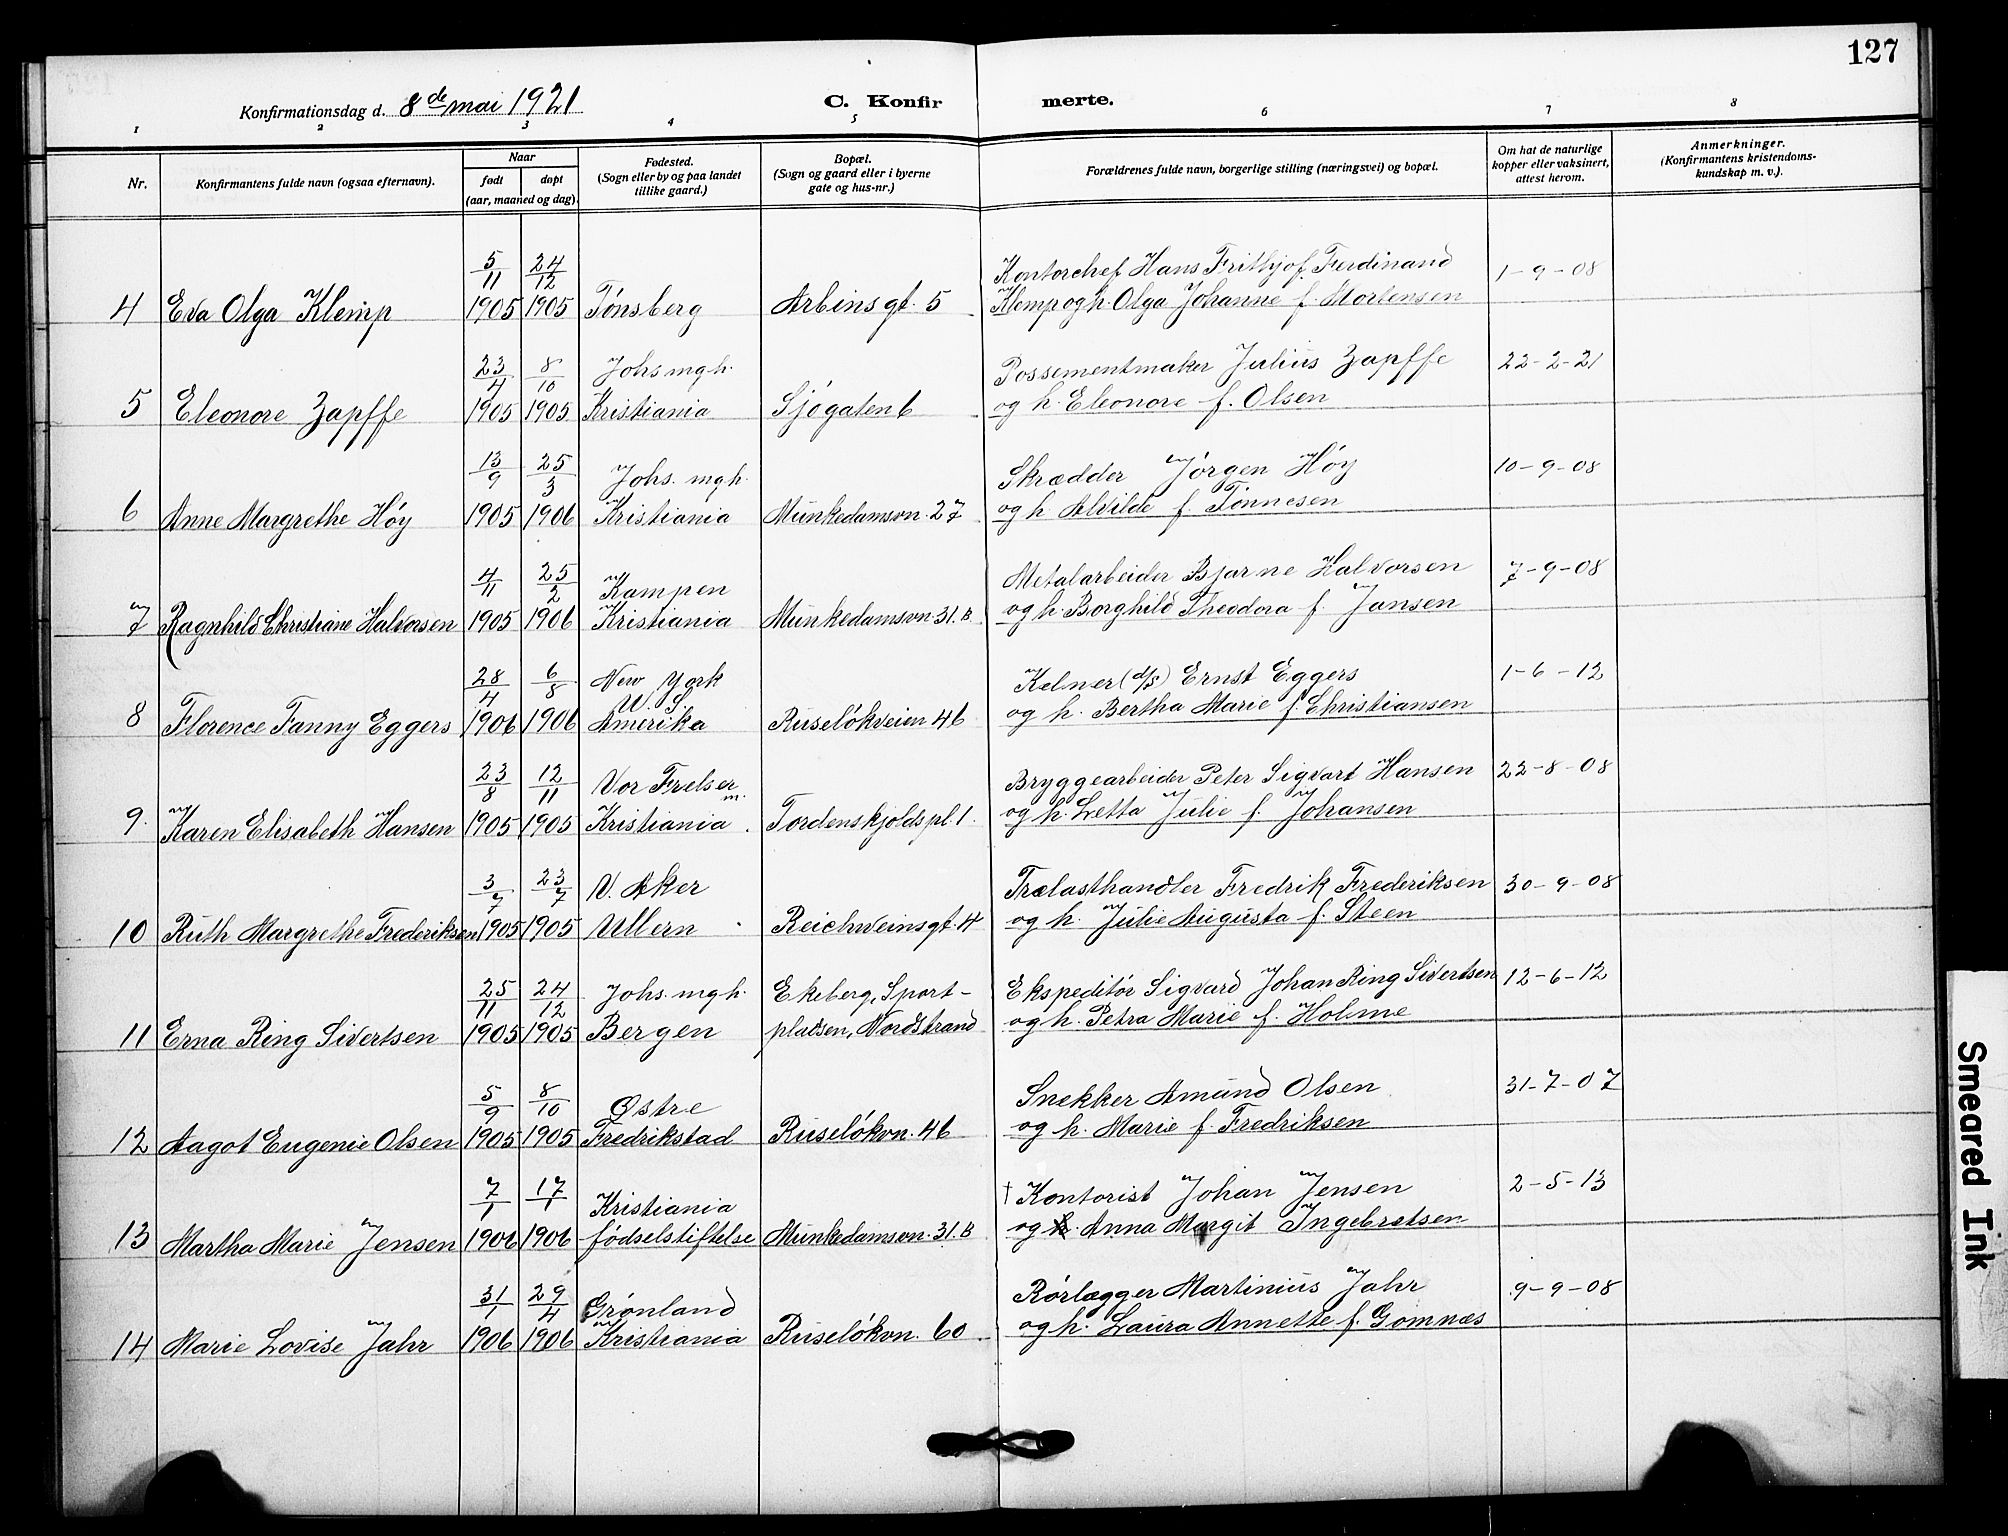 127
Konfirmationsdag d. 8de mai 1921
C. Konfirmerte.
1 2 3 4 5 6 7 8
Nr.
Konfirmantens fulde navn (ogsaa efternavn).
Naar
født døpt
(aar, maaned og dag).
Fødested.
(Sogn eller by og paa landet
tillike gaard.)
Bopæl.
(Sogn og gaard eller i byerne
gate og hus-nr.)
Forældrenes fulde navn, borgerlige stilling (næringsvei) og bopæl.
Om hat de naturlige
kopper eller vaksinert,
attest herom.
Anmerkninger.
(Konfirmantens kristendoms-
kundskap m. v.).
5/11 24/12 Kontorchef Hans Frithjof Ferdinand 1-9-08
4 Eva Olga Klemp 1905 1905 Tønsberg Arbins gt. 5 Klemp og h. Olga Johanne f. Mortensen
23/4 8/10 Johs mgh. Possementmaker Julius Zapffe 22-2-21
5 Eleonore Zapffe 1905 1905 Kristiania Sjøgaten 6 og h. Eleonore f. Olsen
13/9 25/3 Johs. mgh. Skrædder Jørgen Høy 10-9-08
6 Anne Margrethe Høy 1905 1906 Kristiania Munkedamsvn. 27 og h. Alvilde f. Tønnesen
4/11 25/2 Kampen Metalarbeider Bjarne Halvorsen 7-9-08
7 Ragnhild Christiane Halvorsen 1905 1906 Kristiania Munkedamsvn. 31.B og h. Borghild Theodora f. Jansen
28/4 6/8 New York Kelner (d/s) Ernst Eggers 1-6-12
U. S.
8 Florence Fanny Eggers 1906 1906 Amerika Ruseløkveien 46 og h. Bertha Marie f. Christiansen
23/8 12/11 Vor Frelser m. Bryggearbeider Peter Sigvart Hansen 22-8-08
9. Karen Elisabeth Hansen 1905 1905 Kristiania. Tordenskjolds pl. 1. og h. Letta Julie f. Johansen
3/7 23/7 V. Aker Trælasthandler Fredrik Frederiksen 30-9-08
10 Ruth Margrethe Frederiksen 1905 1905 Ullern Reichweinsgt. 4 og h. Julie Augusta f. Steen
25/11 24/12 Johs. mgh. Ekeberg, Sport- Ekspeditør Sigvard Johan Ring Sivertsen 12-6-12
11 Erna Ring Sivertsen 1905 1905 Bergen pladsen, Nordstrand og h. Petra Marie f. Holme
5/9 8/10 Østre Snekker Amund Olsen 31-7-07
12 Aagot Eugenie Olsen 1905 1905 Fredrikstad Ruseløkvn. 46 og h. Marie f. Fredriksen
7/1 17/1 Kristiania † Kontorist Johan Jensen 2-5-13
13 Martha Marie Jensen 1906 1906 fødselstiftelse Munkedamsvn. 31.B og h. Anna Margit Ingebretsen
31/1 29/4 Grønland Rørlægger Martinius Jahr 9-9-08
14 Marie Lovise Jahr 1906 1906 Kristiania Ruseløkvn. 60 og h. Laura Annette f. Gomnæs
Smeared Ink